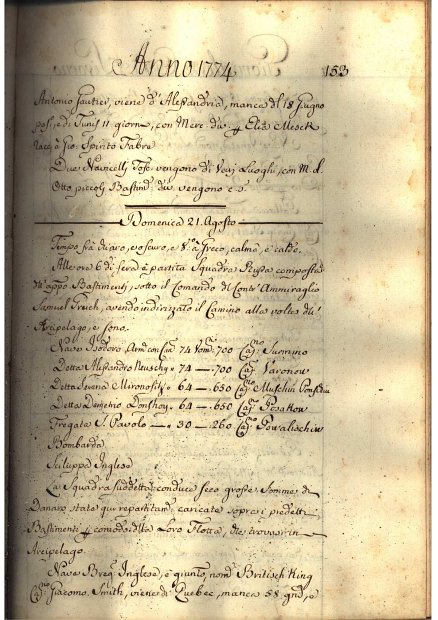 Anno 1774
153
Antonio Gautier, viene d'Alessandria, manca dal 18 Giugno
e di Tunis 11 giorni, con Merc. div. Elia Meseck
a Gio. Spirito Fabre
Due Navicelli Tosc. vengono di Varj Luoghi con M. d.
Otto piccoli Bastim. div. vengono c. s.
Domenica 21. Agosto
Tempo frà chiaro, e oscuro, e V.º a Greco, calma, e caldo.
Alle ore 6 di sera è partita Squadra Russa composta
Bastimenti, sotto il Comando del Contr'Ammiraglio
Samuel Greich, avendo indirizzato il Camino alla volta dell'
Arcipelago, e sono.
Nave Isidoro, 74 700 Surmino
Detta Alessandro 74 — 700 Varonow
Detta Serena Mironositz 64 — 650 Muschin
Detta Demetrio Donskoy 64 — 650 Posatkow
Fregata S. Pavolo — 30 — 260 Powalischin
Bombarda
Sciluppa Inglese
La Squadra suddetta conduce seco grosse Somme di
Danaro state qui repartitam. caricate sopra i predetti
Bastimenti comodo della Loro Flotta, che trovasi in
Arcipelago.
Nave Breg. Inglese, è giunto, nom. Britisch King
Giacomo Smith, viene di Quebec, manca 58 gni, e